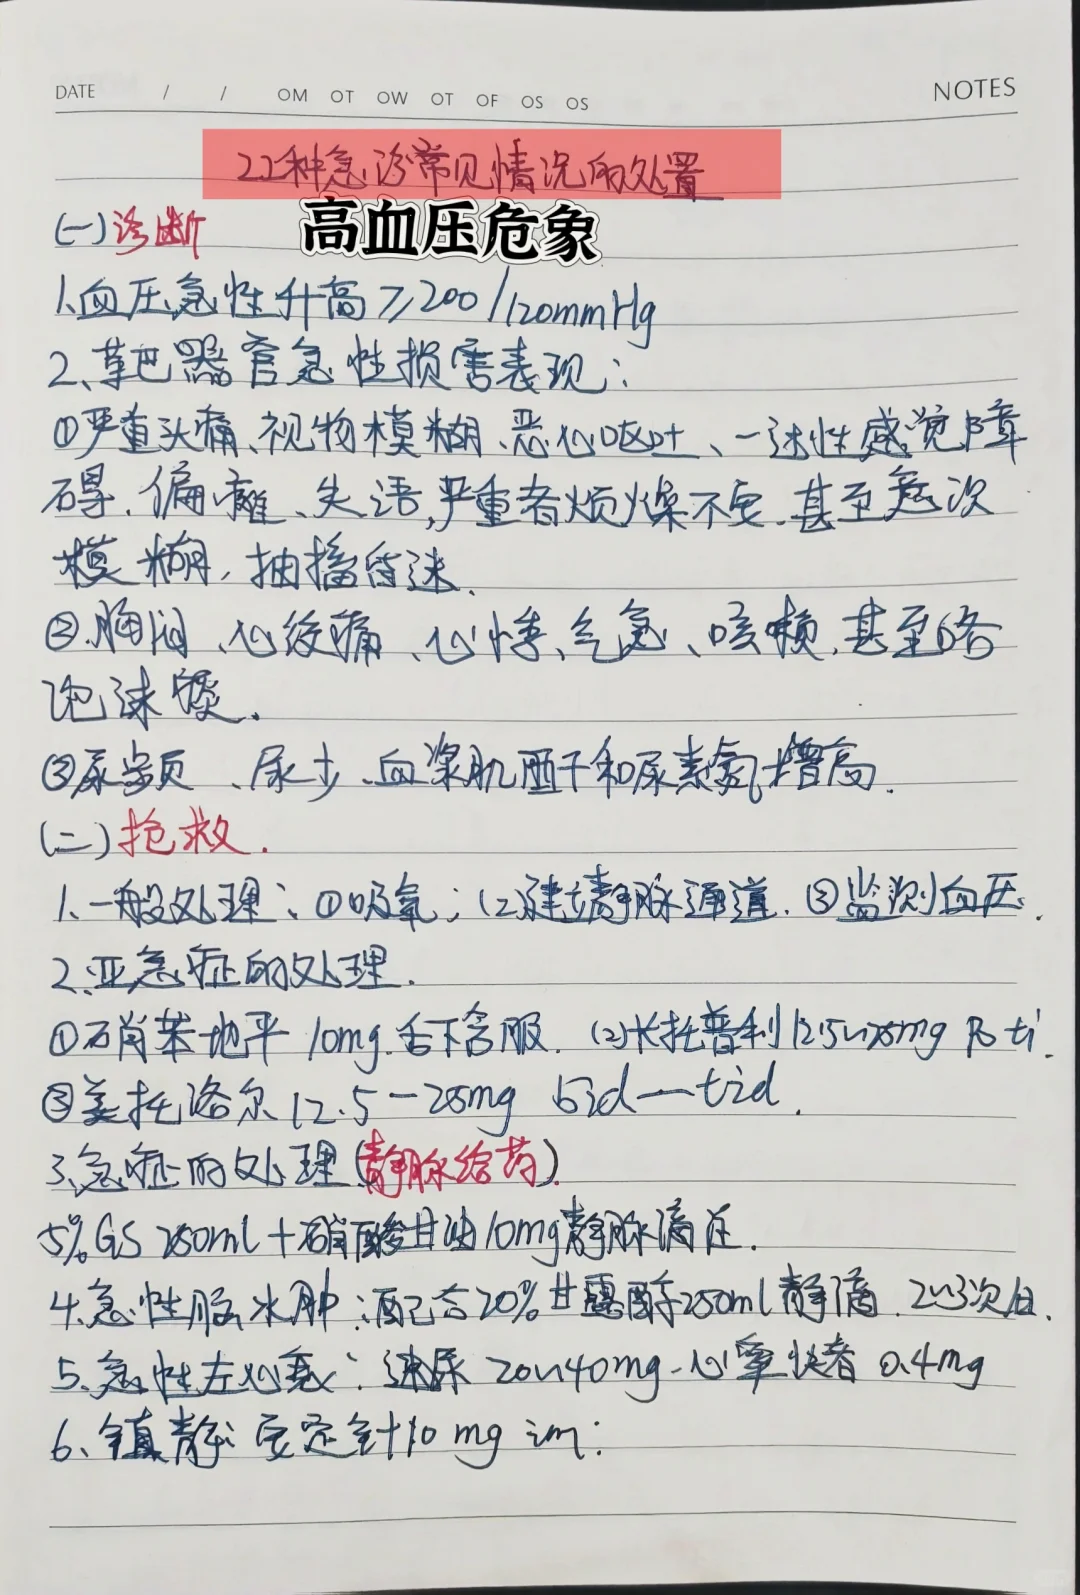 DATE / / OM OT OW OT OF OS OS NOTES
22种急诊常见情况的处置
高血压危象
(一)诊断
1.血压急性升高≥200/120mmHg
2、靶器官急性损害表现:
①严重头痛、视物模糊、恶心呕吐、一过性感觉障
碍、偏瘫、失语,严重者烦燥不安、甚至意识
模糊,抽搐昏迷.
②胸闷、心绞痛、心悸、气急、咳嗽,甚至咯
泡沫痰.
③尿频、尿少、血浆肌酐和尿素氮增高.
(二)抢救.
1.一般处理:①吸氧;(2)建立静脉通道.③监测血压.
2.亚急症的处理.
①硝苯地平10mg.舌下含服.(2)卡托普利12.5~25mg Po ti.
③美托洛尔12.5-25mg bid—tid.
3.急症的处理(静脉给药).
5%GS 250ml+硝酸甘油10mg静脉滴注.
4.急性脑水肿:配合20%甘露醇250ml静滴.2~3次/日.
5.急性左心衰:速尿20~40mg 心率快者0.4mg
6、镇静:安定针10mg im: